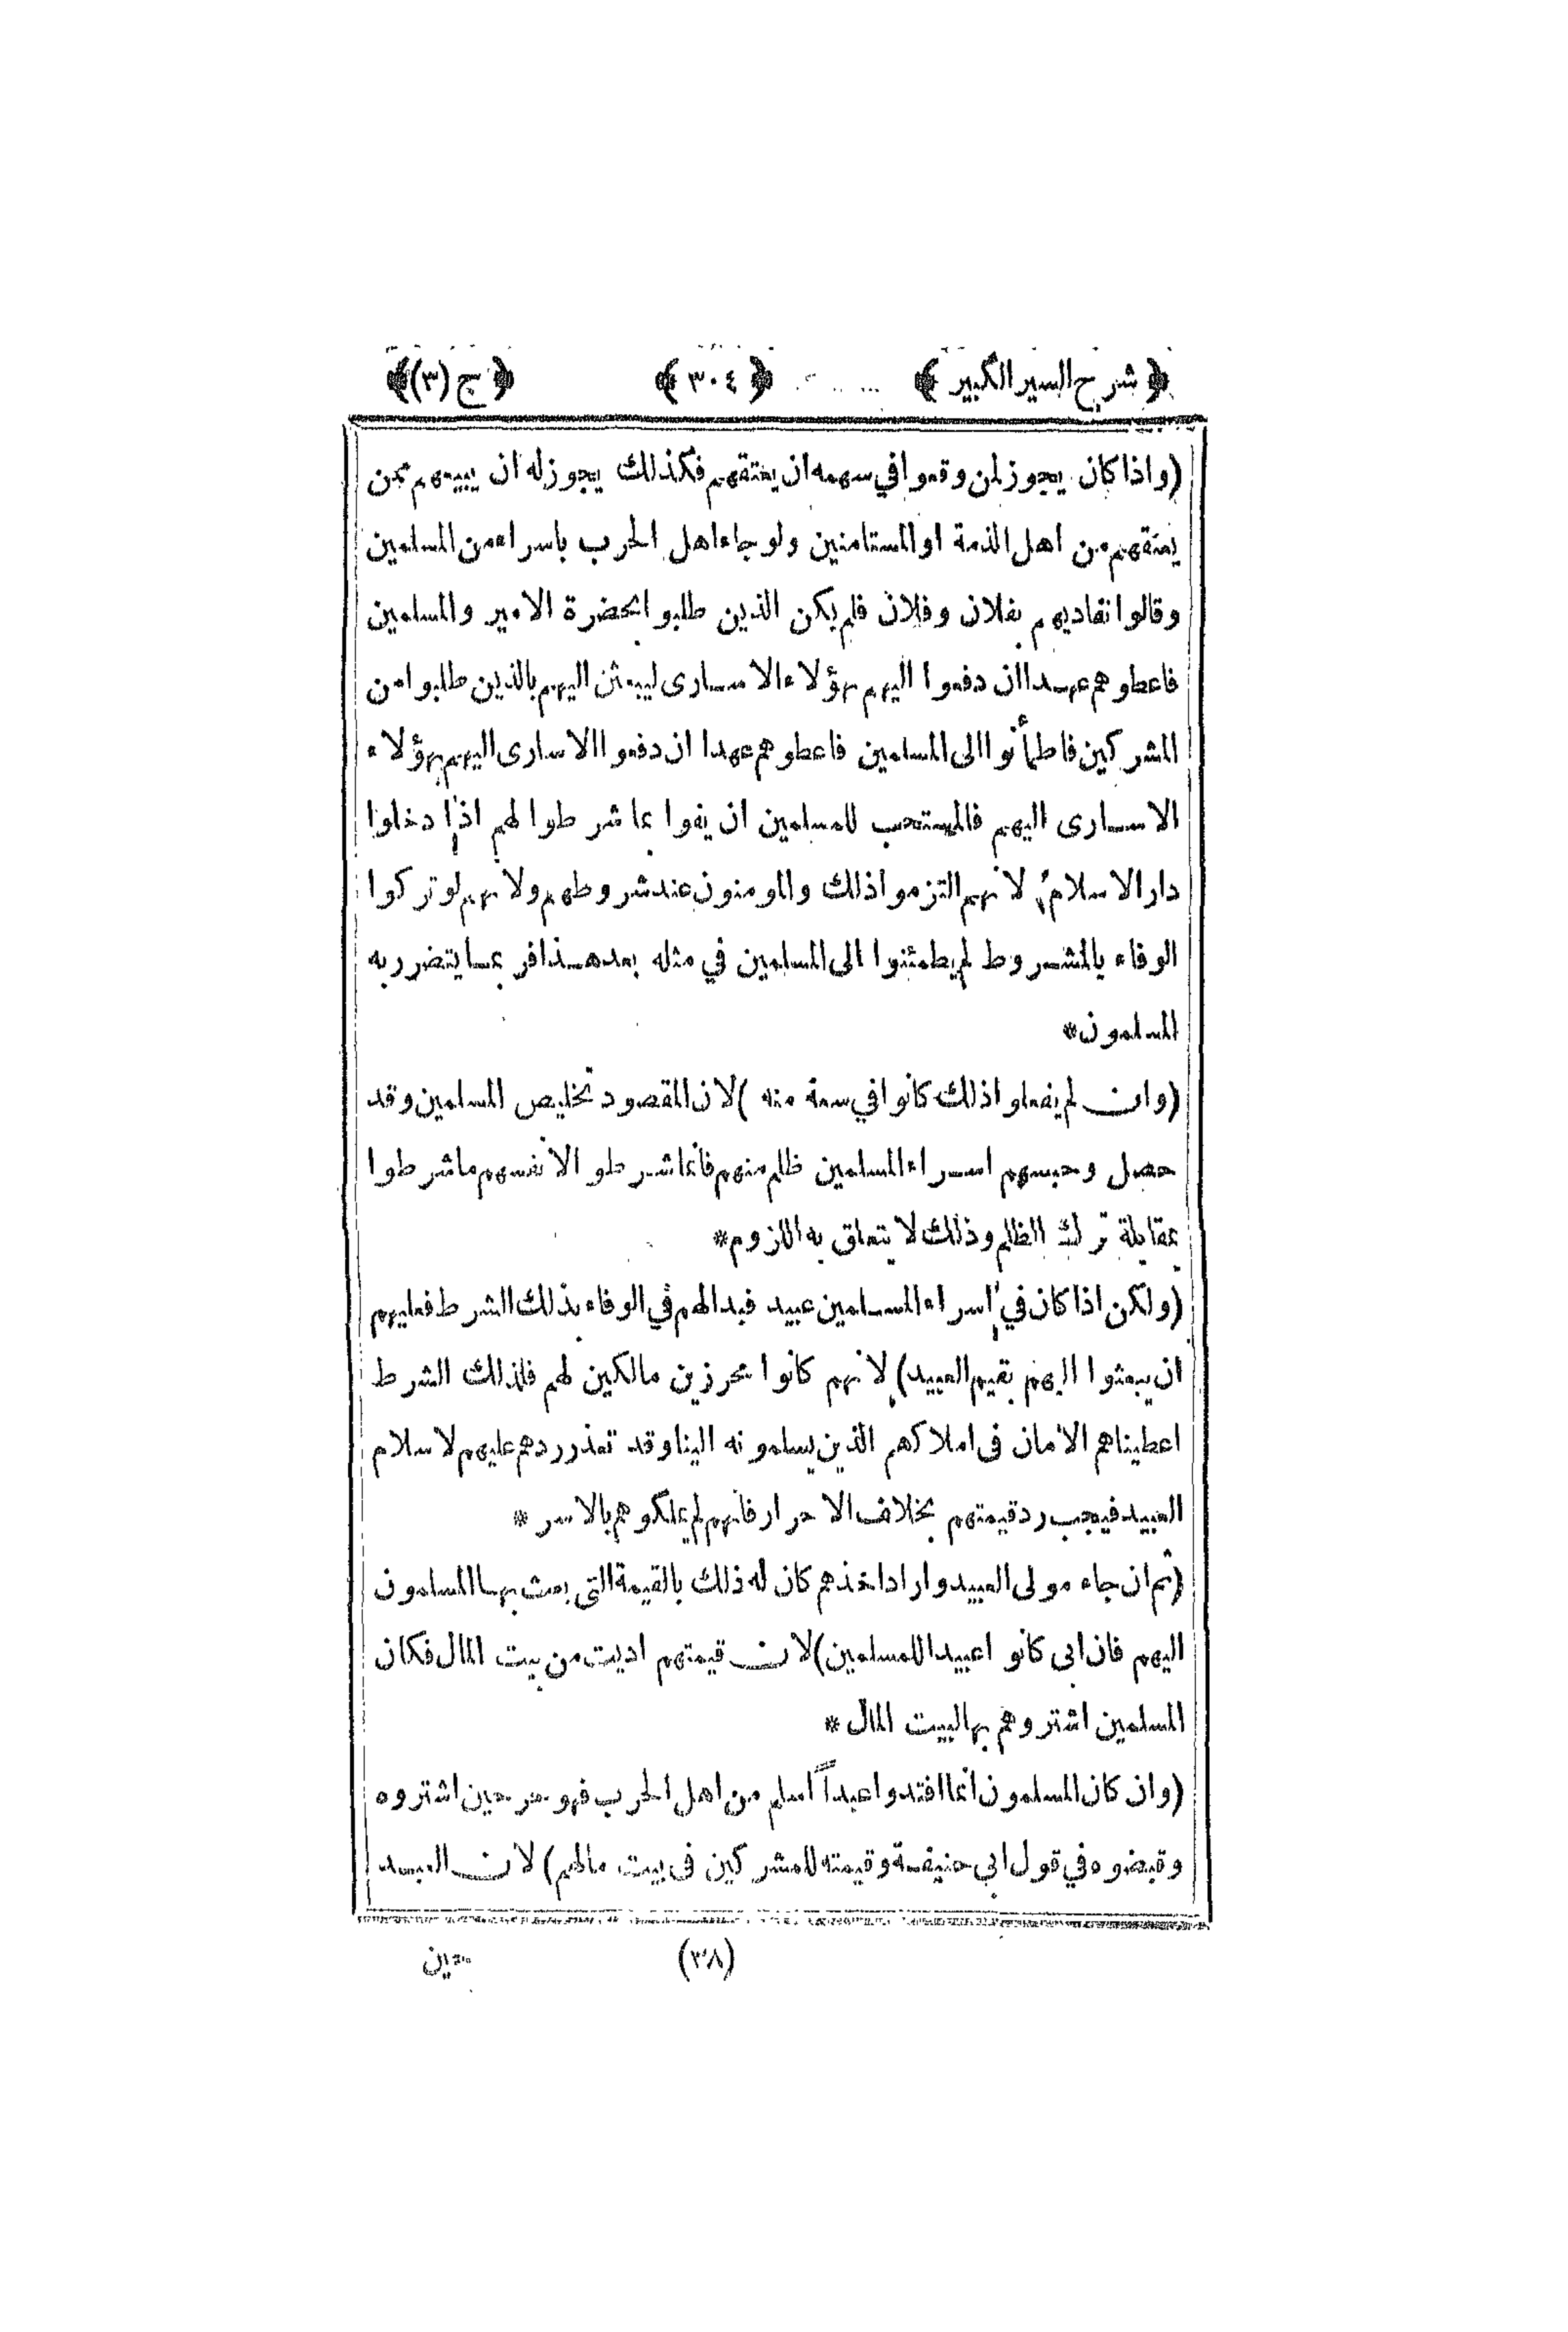 ﴿ شرح السير الكبير ﴾ ﴿ ٣٠٤ ﴾ ﴿ ج (٣) ﴾
(واذا كان يجوز لمن وقعوا في سهمه ان يعتقهم فكذلك يجوز له ان يبيعهم ممن
يعتقهم من اهل الذمة او المستامنين ولو جاء اهل الحرب باسراء من المسلمين
وقالوا نفاديهم بفلان وفلان فلم يكن الذين طلبوا بحضرة الامير والمسلمين
فاعطوهم عهدا ان دفعوا اليهم هؤلاء الاسارى ليبعثن اليهم بالذين طلبوا من
المشركين فاطمأنوا الى المسلمين فاعطوهم عهدا ان دفعوا الاسارى اليهم بهؤلاء
الاسارى اليهم فالمستحب للمسلمين ان يفوا بما شرطوا لهم اذا دخلوا
دار الاسلام، لانهم التزموا ذلك والمومنون عند شروطهم ولانهم لو تركوا
الوفاء بالمشروط لم يطمئنوا الى المسلمين في مثله بعد هذا فربما يتضرر به
المسلمون*
(وان لم يفعلوا ذلك كانوا في سعة منه ) لان المقصود تخليص المسلمين وقد
حصل وحبسهم اسراء المسلمين ظلم منهم فانما شرطوا لانفسهم ما شرطوا
بمقابلة ترك الظلم وذلك لا يتعلق به اللزوم*
(ولكن اذا كان في اسراء المسلمين عبيد فبدا لهم في الوفاء بذلك الشرط فعليهم
ان يبعثوا اليهم بقيم العبيد) لانهم كانوا محرزين مالكين لهم فلذلك الشرط
اعطيناهم الامان فى املاكهم الذين يسلمونه الينا وقد تعذر ردهم عليهم لاسلام
العبيد فيجب رد قيمتهم بخلاف الاحرار فانهم لم يملكوهم بالاسر *
(ثم ان جاء مولى العبيد واراد اخذهم كان له ذلك بالقيمة التى بعث بها المسلمون
اليهم فان ابى كانوا عبيدا للمسلمين) لان قيمتهم اديت من بيت المال فكان
المسلمين اشتروهم بها لبيت المال *
(وان كان المسلمون انما افتدوا عبداً اسلم من اهل الحرب فهو حر حين اشتروه
وقبضوه في قول ابي حنيفة وقيمته للمشركين فى بيت مالهم) لان العبد
(٣٨)